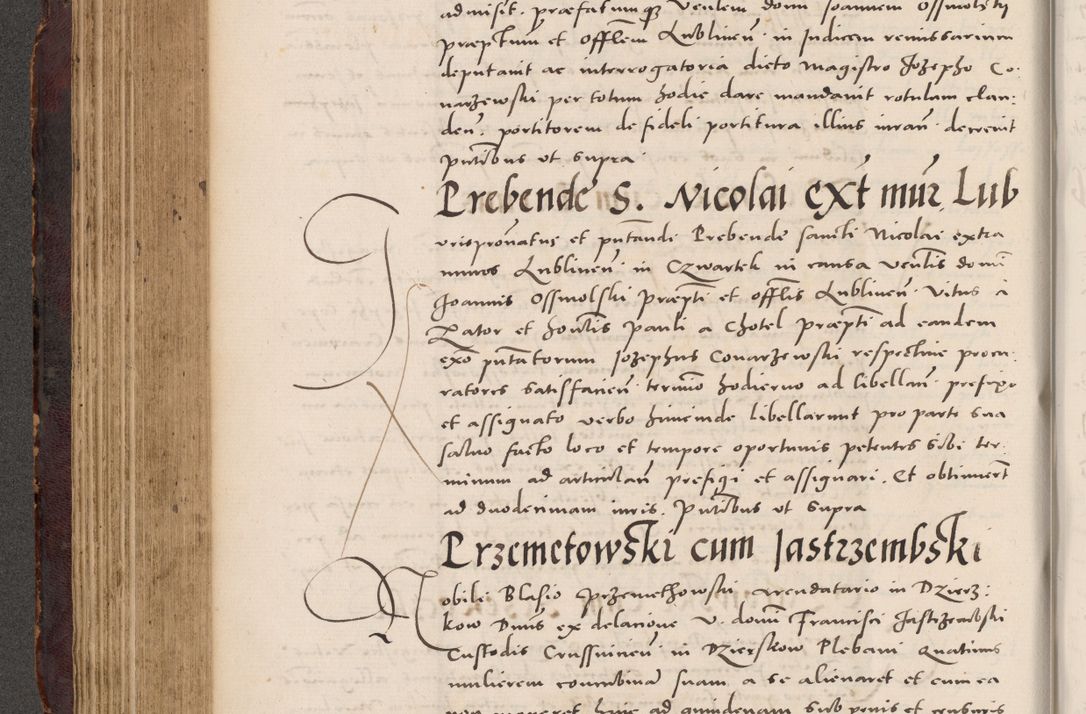 admisit. præfatumq̃ venlem domi Joannem Ossmolski
præptum et Offlem Lublinen̄ in Judicem remissarium
deputavit ac interrogatoria dicto magistro Jozepho Co:
narzewski per totum hodie dare mandavit rotulum clau:
den̄. portitorem de fideli portitura illius iuran̄ decrevit
Pn̄tibus ut supra
Prebende S. Nicolai ext̄ mur̄ Lub
Iurispronatus et pn̄tandi Prebende sancti Nicolai extra
muros Lublinen̄ in Czwartek in causa venlis domi
Joannis Ossmolski Præpti et offlis Lublinen̄ Vitus a
Lator et hon̄tis Pauli a Chotel præpti ad eandem
exo pn̄tatorum Jozephus Conarzewski respective procu:
ratores satisfacien̄ termino hodierno ad libellan̄ prefixo
et assignato verbo hincinde libellarunt pro parte sua
salvo facto loco et tempore oportunis petentes sibi ter:
minum ad articulan̄ prefigi et assignari. Et obtinuert̄
ad duodecimam iuris. Pn̄tibus ut supra
Przemetowski cum Jastrzembski
Nobili Blasio Przemethowski arendatario in Dzierz:
kow Dnus ex delacione V. domi Francisci Jastrzembski
Custodis Crussvicien̄ in Dzierskow Plebani Quatinus
mulierem concubinam suam a se alienaret et cum ea
non maneret hinc ad quindenam sub penis et censuris